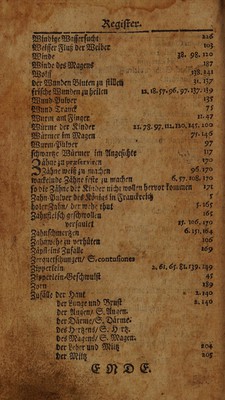 Register.
Windige Wassersucht 226
Weisser Fluß der Weiber 103
Winde 38. 98. 120
Winde des Magens 187
Wolff 138. 141
der Wunden Bluten zu stillen 31. 137
frische Wunden zu heilen 12. 18. 57. 96. 97. 137. 139
Wund-Pulver 135
Wund-Tranck 75
Wurm am Finger 11. 47
Würme der Kinder
Würmer im Magen 71. 146
Wurm-Pulver 97
schwartze Würmer im Angesichte 117
Zähne zu 170
Zähne weiß zu machen 96. 170
wackelnde Zähne feste zu machen 6. 57. 108. 170
so die Zähne der Kinder nicht wollen hervor kommen 171
Zahn-Pulver des Königs in Franckreich 5
hohler Zahn/ der wehe thut 3. 165
Zahnfleisch geschwollen 165
verfaulet 37. 106. 170
Zahnschmertzen 6. 131. 164
Zahnwehe zu verhüten 106
Zäpfleins Zufälle 169
Zerquetschungen/ S. contusiones
Zipperlein 2. 61. 65. 81. 139. 149
Zipperlein-Geschwulst 45
Zorn 189
Zufälle der Haut 2. 140
der Lunge und Brust 2. 146
der Augen/ S. Augen.
der Därme/ S. Därme.
des Hertzens/ S. Hertz.
des Magens/ S. Magen.
der Leber und Miltz 204
der Miltz 205
ENDE.